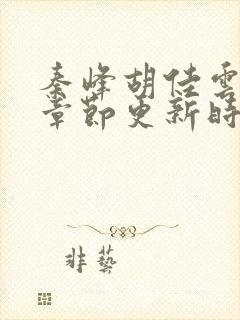 秦峰胡佳雲
章節更新時
非藝